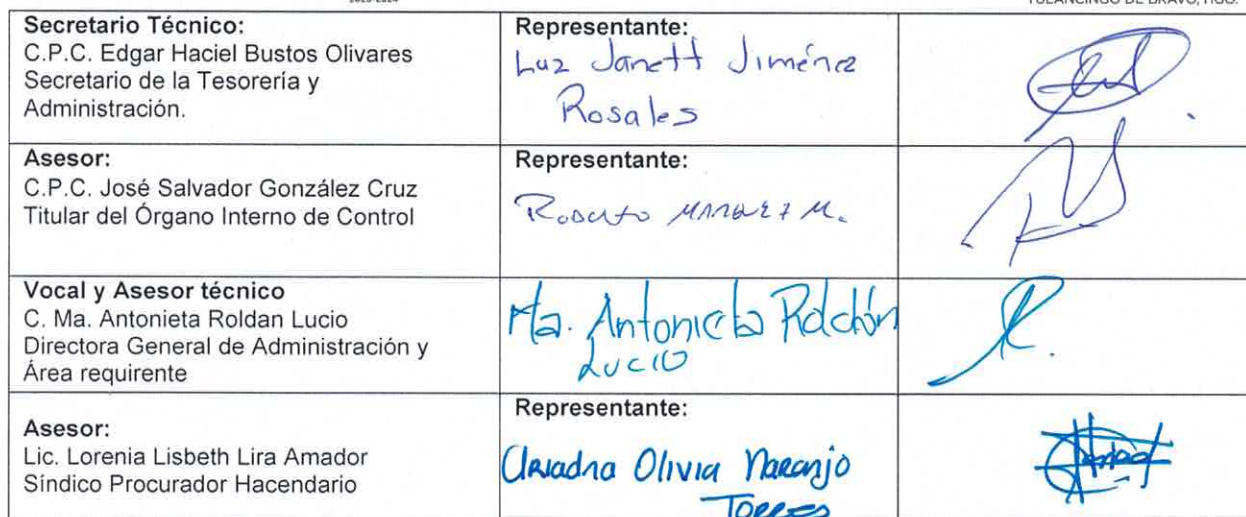 2020-2024
TULANCINGO DE BRAVO, HGO.
Secretario Técnico:
C.P.C. Edgar Haciel Bustos Olivares
Secretario de la Tesorería y
Administración.
Representante:
Luz Janett Jiménez
Rosales
Asesor:
C.P.C. José Salvador González Cruz
Titular del Órgano Interno de Control
Representante:
Roberto Marquez M.
Vocal y Asesor técnico
C. Ma. Antonieta Roldan Lucio
Directora General de Administración y
Área requirente
Ma. Antonieta Roldán
Lucio
Asesor:
Lic. Lorenia Lisbeth Lira Amador
Síndico Procurador Hacendario
Representante:
Ariadna Olivia Naranjo
Torres